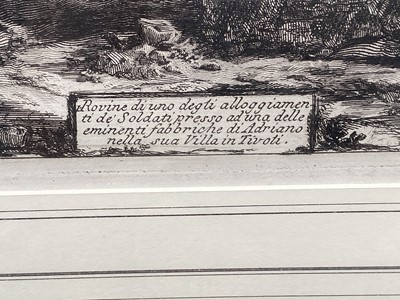 Rovine di uno degti alloggiamen
ti de' Soldati presso ad una delle
eminenti fabbriche di Adriano
nella sua Villa in Tivoli.